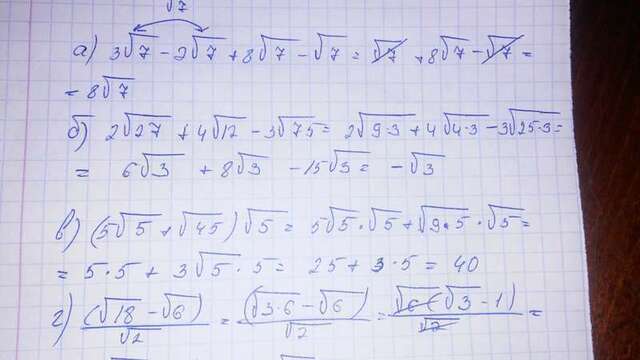 √7
а) 3√7 - 2√7 + 8√7 - √7 = √7 + 8√7 - √7 =
= 8√7
б) 2√27 + 4√12 - 3√75 = 2√9·3 + 4√4·3 - 3√25·3 =
= 6√3 + 8√3 - 15√3 = -√3
в) (5√5 + √45)√5 = 5√5·√5 + √9·5·√5 =
= 5·5 + 3√5·5 = 25 + 3·5 = 40
г) (√18 - √6)/√2 = (√3·6 - √6)/√2 = √6(√3 - 1)/√2 =